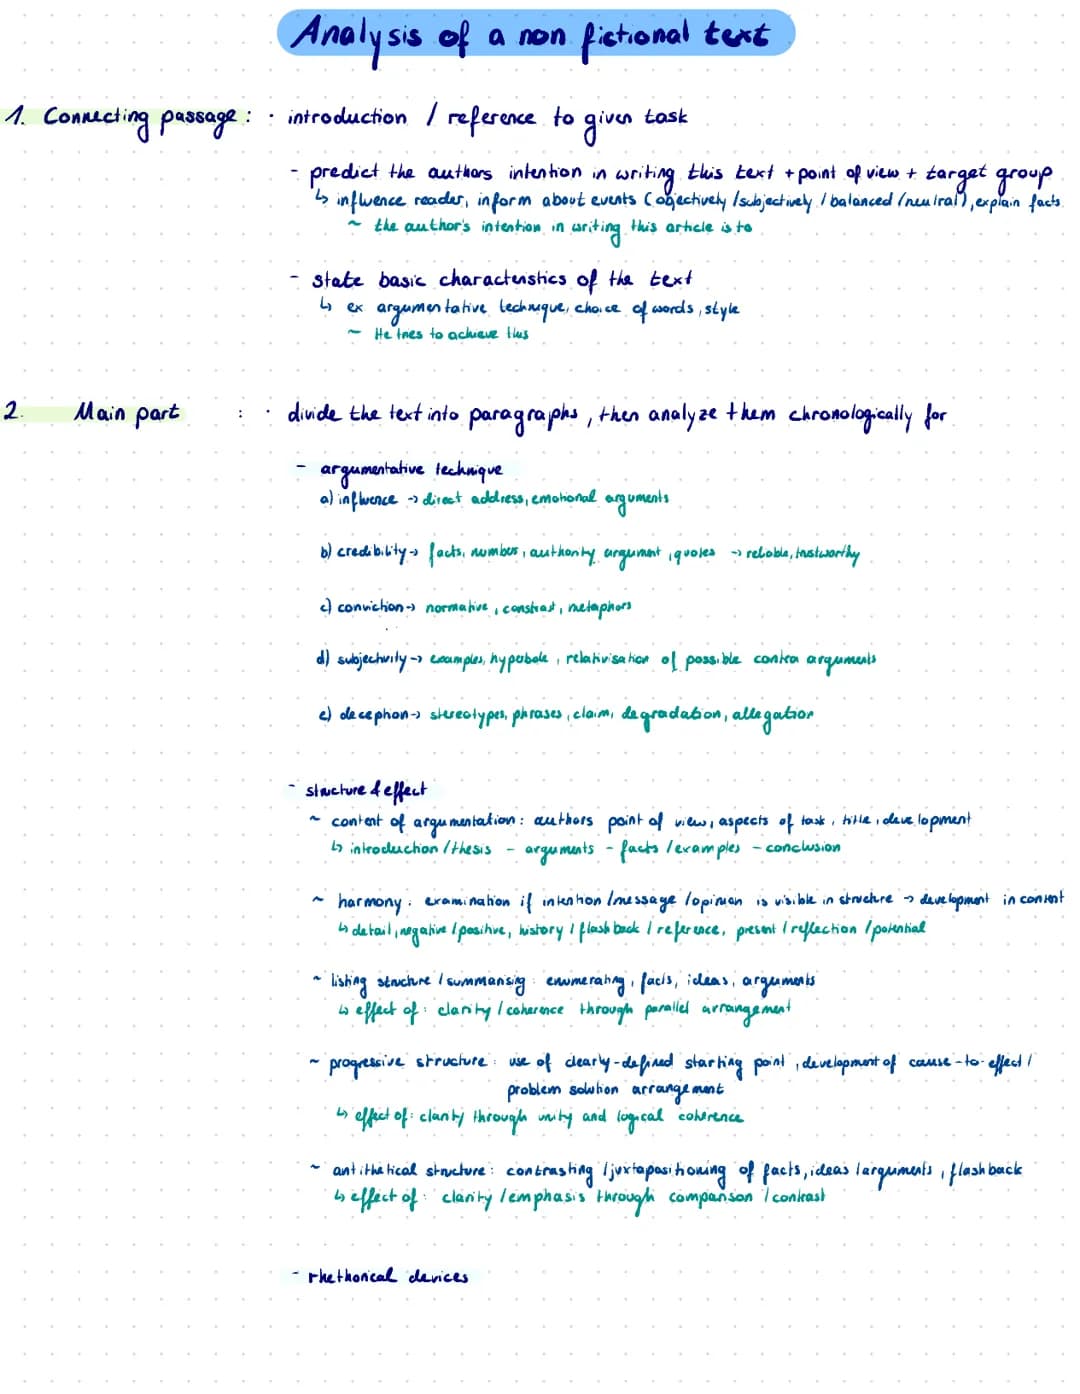 Analysis of a non fictional text
1. Connecting passage : · introduction / reference to given task
- predict the authors intention in writing this text + point of view + target group
↳ influence reader, inform about events (objectively /subjectively / balanced /neutral), explain facts
~ the author's intention in writing this article is to
- state basic characteristics of the text
↳ ex argumentative technique, choice of words, style
~ He tries to achieve this
2. Main part : · divide the text into paragraphs, then analyze them chronologically for
- argumentative technique
a) influence → direct address, emotional arguments
b) credibility → facts, numbers, authority argument, quotes → reliable, trustworthy
c) conviction → normative, contrast, metaphors
d) subjectivity → examples, hyperbole, relativisation of possible contra arguments
e) deception → stereotypes, phrases, claim, degradation, allegation
- structure & effect
~ content of argumentation: authors point of view, aspects of task, title, development
↳ introduction /thesis - arguments - facts /examples - conclusion
~ harmony: examination if intention /message /opinion is visible in structure → development in content
↳ detail, negative /positive, history / flash back / reference, present / reflection /potential
~ listing structure / summarising: enumerating, facts, ideas, arguments
↳ effect of: clarity / coherence through parallel arrangement
~ progressive structure: use of clearly-defined starting point, development of cause-to-effect /
problem solution arrangement
↳ effect of: clarity through unity and logical coherence
~ antithetical structure: contrasting /juxtapositioning of facts, ideas /arguments, flashback
↳ effect of: clarity /emphasis through comparison / contrast
- rhethorical devices